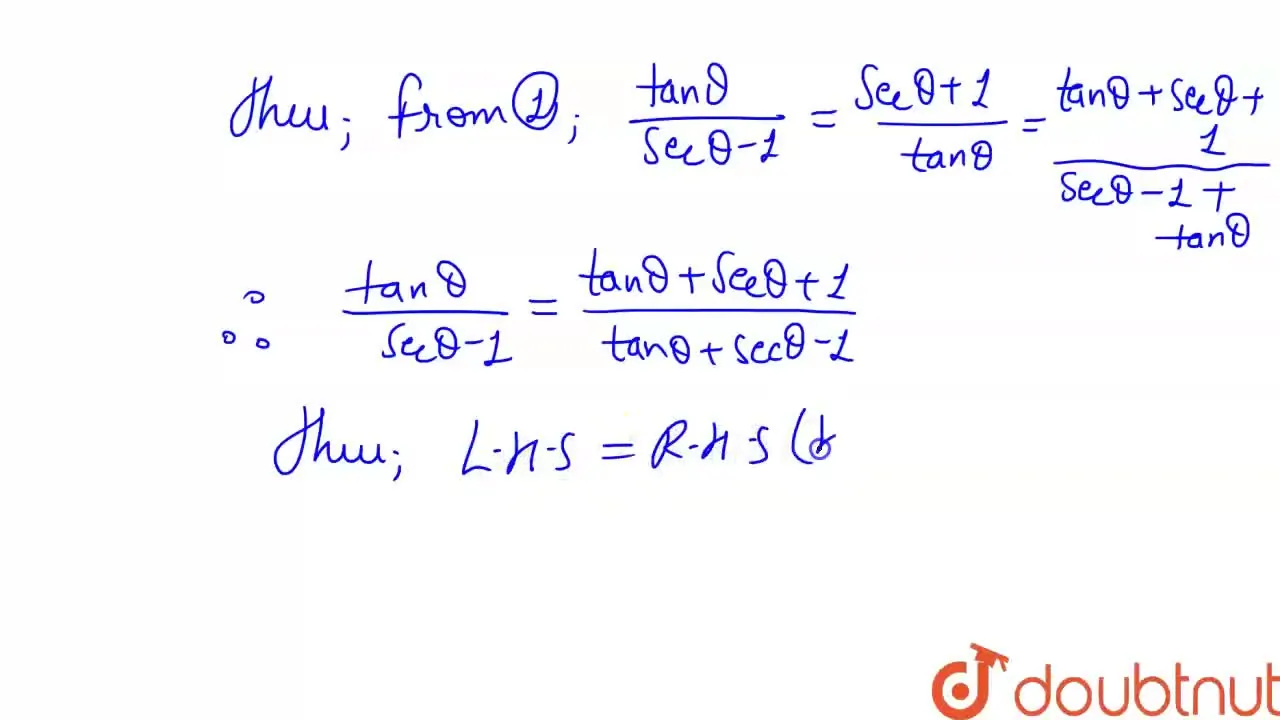 thus; from ①; tanθ/(secθ-1) = (secθ+1)/tanθ = (tanθ+secθ+1)/(secθ-1+tanθ)
∴ tanθ/(secθ-1) = (tanθ+secθ+1)/(tanθ+secθ-1)
thus; L.H.S = R.H.S (
doubtnut